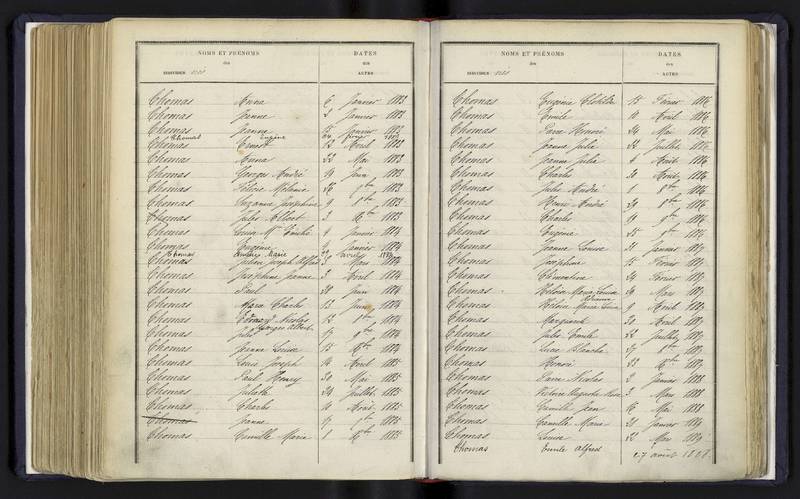 NOMS ET PRÉNOMS
des
INDIVIDUS nés
DATES
des
ACTES
Thomas Anna 6 Janvier 1883
Thomas Jeanne 2 Janvier 1883
Thomas Jeanne 15 Janvier 1883
Thomas Eugène 24 1883
Thomas Ernest 13 Avril 1883
Thomas Anna 22 Mai 1883
Thomas Georges André 14 Juin 1883
Thomas Félicie Mélanie 26 7bre 1883
Thomas Suzanne Joséphine 9 8bre 1883
Thomas Jules Albert 3 Xbre 1883
Thomas Louise Mie 4 Janvier 1884
Thomas Eugénie 9 Janvier 1884
Thomas Marie Avril 1884
Thomas Julien Joseph Alfred Mars 1884
Thomas Joséphine Jeanne 2 Avril 1884
Thomas Paul 28 Juin 1884
Thomas Charles 13 Juin 1884
Thomas Edouard Nicolas 12 1884
Thomas Jules Georges Albert 1884
Thomas Jeanne Louise 15 Xbre 1884
Thomas Louis Joseph 14 Avril 1885
Thomas Paul Henry 30 Mai 1885
Thomas Juliette 24 Juillet 1885
Thomas Charles 10 Août 1885
Thomas Jeanne 1885
Thomas Camille Marie 1 Xbre 1885
NOMS ET PRÉNOMS
des
INDIVIDUS nés
DATES
des
ACTES
Thomas Eugénie Clotilde 15 Février 1886
Thomas Emile 11 Avril 1886
Thomas Honoré 24 Mai 1886
Thomas Jeanne Julie 22 Juillet 1886
Thomas Jeanne Julie 4 Août 1886
Thomas Charles 20 Août 1886
Thomas Jules André 1 8bre 1886
Thomas Henri André 29 8bre 1886
Thomas Charles 19 9bre 1886
Thomas Eugénie 25 9bre 1886
Thomas Jeanne Louise 21 Janvier 1887
Thomas Joséphine 15 Février 1887
Thomas Clémentine 24 Février 1887
Thomas Marie Louise 24 Mars 1887
Thomas Marie Louise Adrienne 9 Avril 1887
Thomas 20 Avril 1887
Thomas Jules Emile 22 Juillet 1887
Thomas Lucie Blanche 27 8bre 1887
Thomas Honoré 23 Xbre 1887
Thomas Nicolas 2 Janvier 1888
Thomas Augustine 3 Mars 1888
Thomas Camille Jean 16 Mai 1888
Thomas Camille Marie 21 Janvier 1889
Thomas Louise 22 Mars 1889
Thomas Emile Alfred 27 août 1888